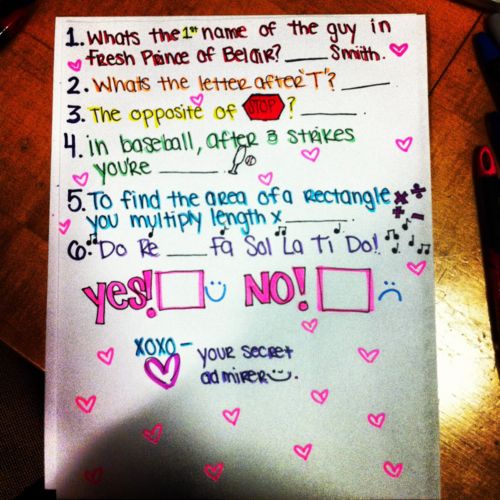 1. Whats the 1st name of the guy in
Fresh Prince of Belair? ____ Smith.
2. Whats the letter after "T"? ____
3. The opposite of STOP? ____.
4. in baseball, after 3 strikes
you're ____.
5. To find the area of a Rectangle
you multiply length x ____.
6. Do Re ____ Fa Sol La Ti Do!
Yes! NO!
XOXO - your secret
admirer